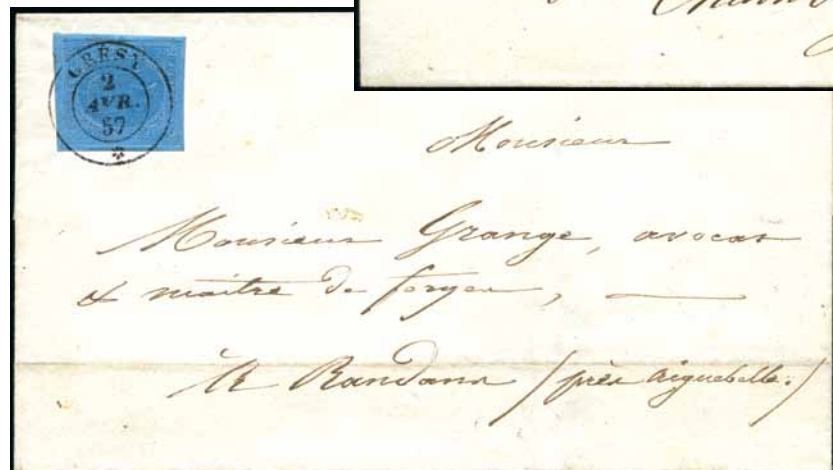 GRÉSY
2
AVR.
57
Monsieur
Monsieur Grange, avocat
& maître de forges,
à Randans (près Aiguebelle.)